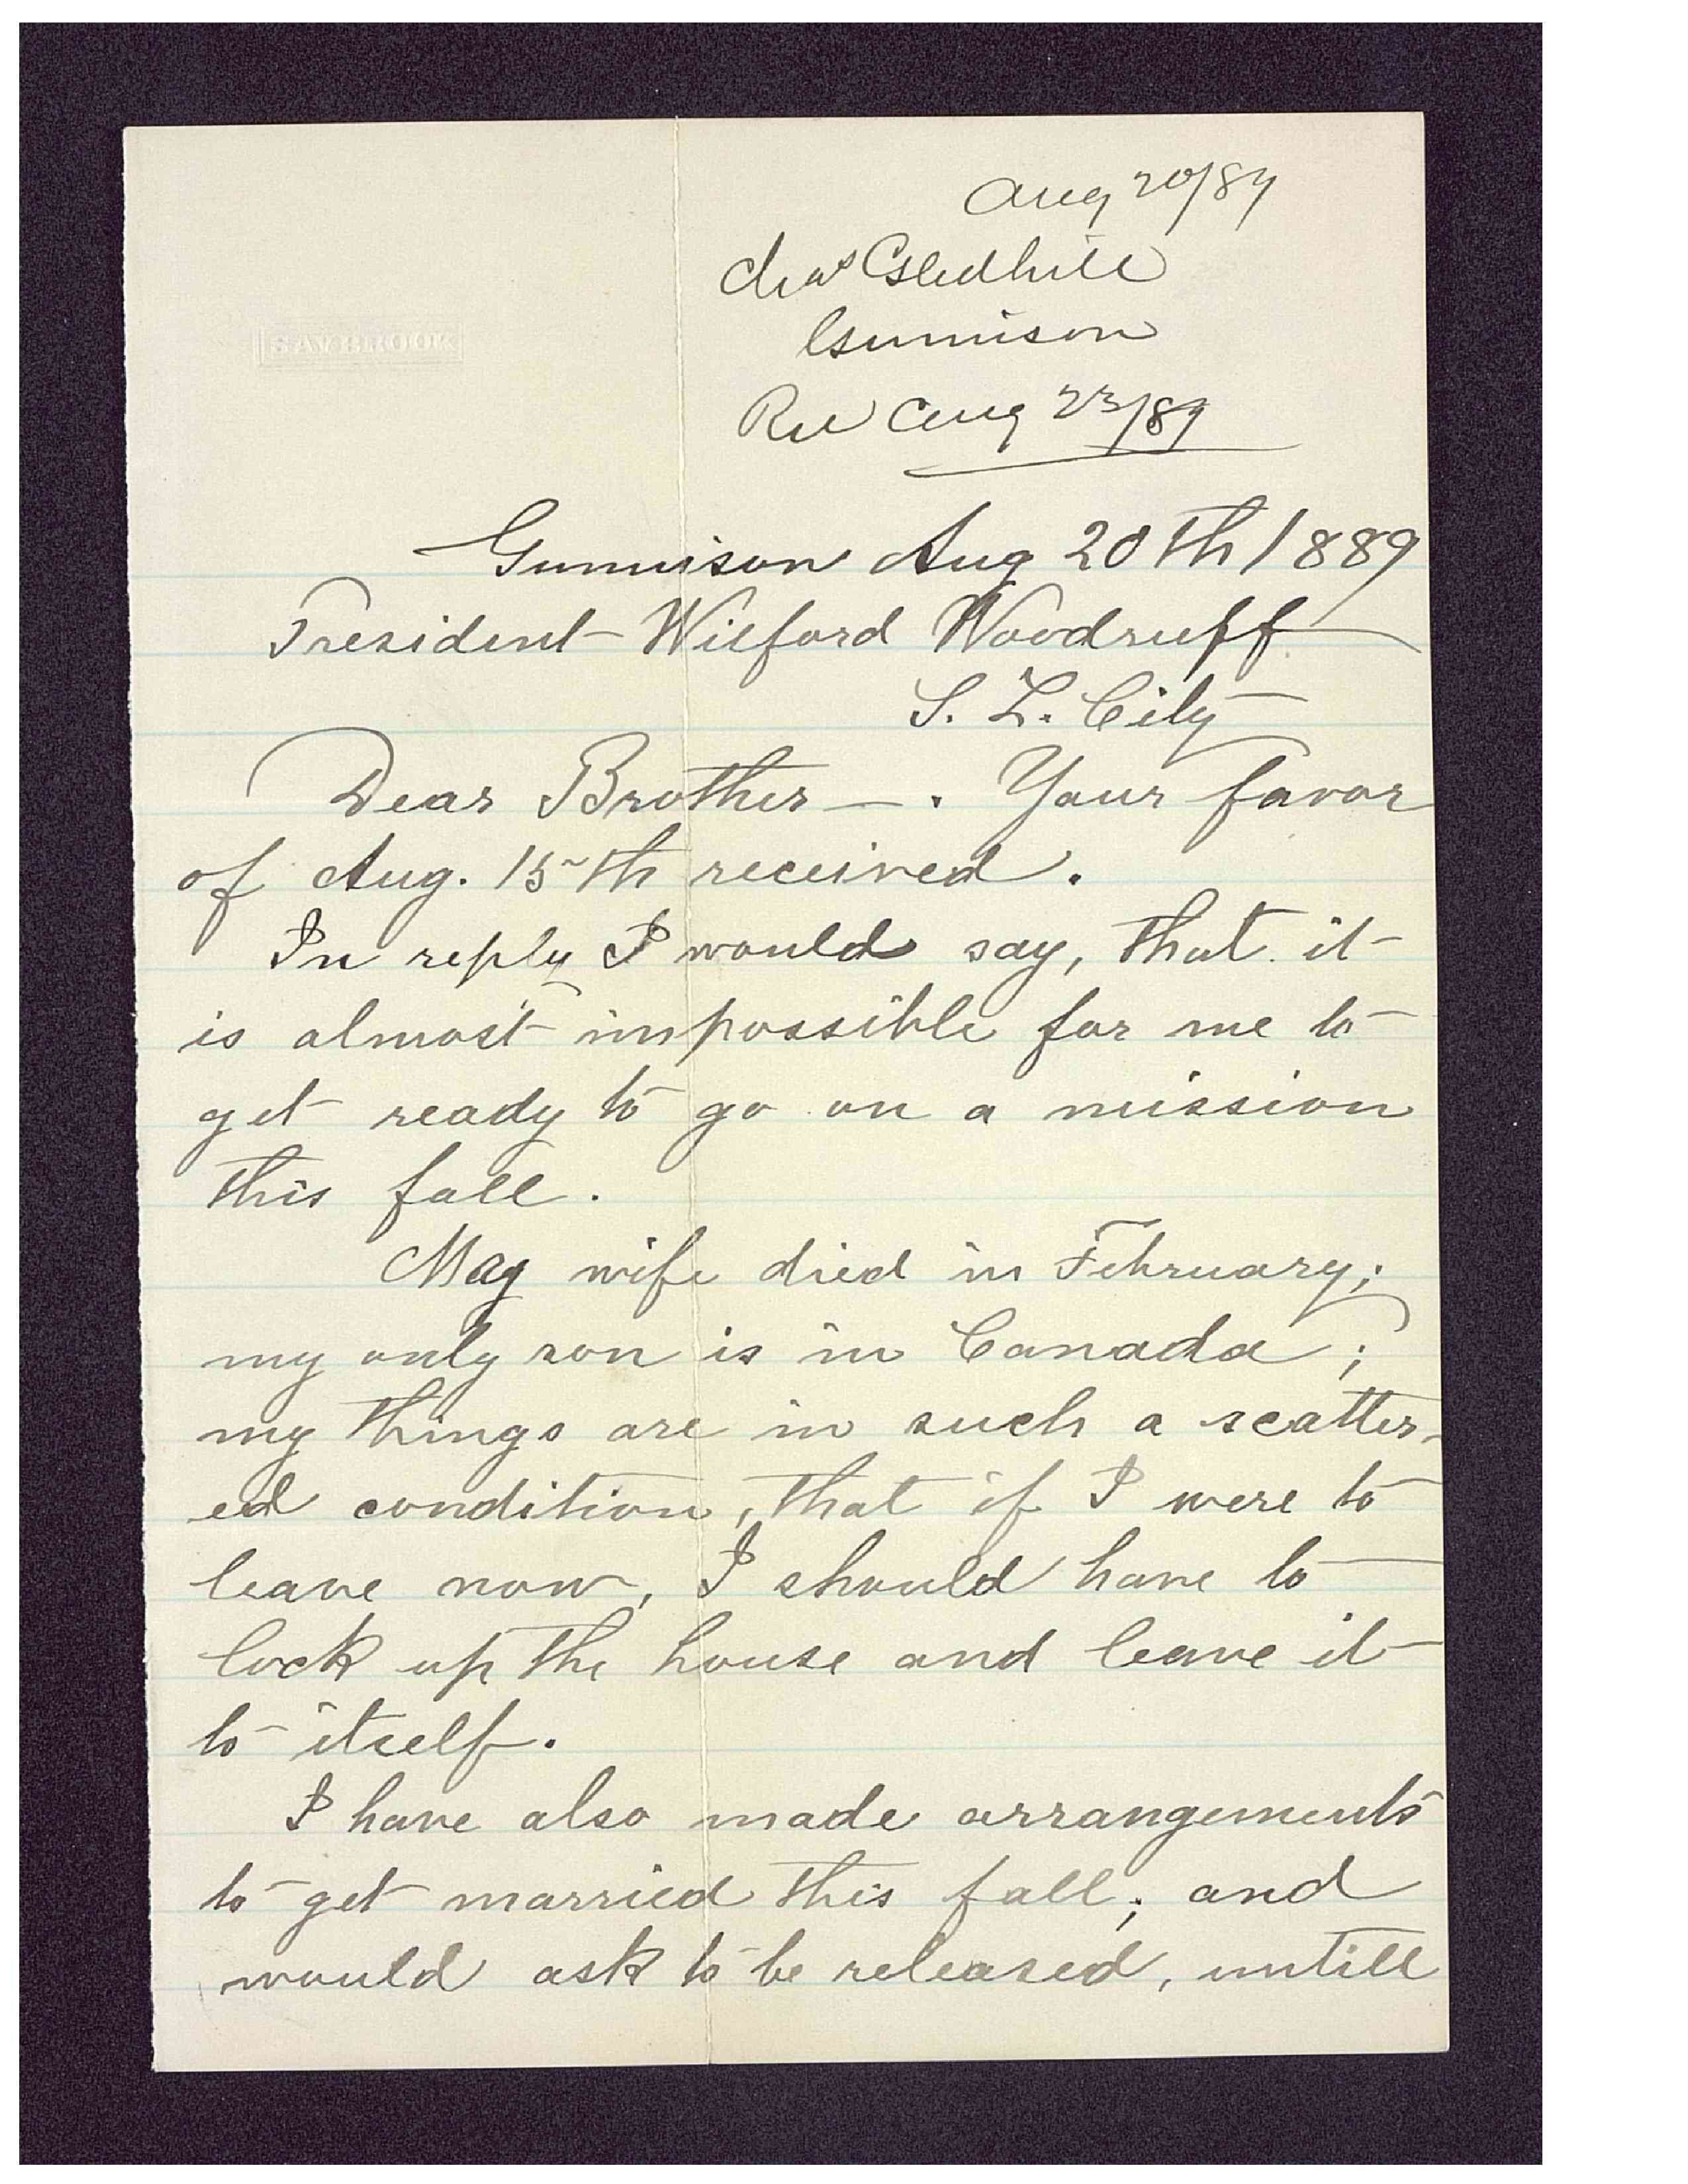 Aug 20/89
Chas Gledhill
Gunnison
Rec Aug 23/89
SAYBROOK
Gunnison Aug 20th 1889
President Wilford Woodruff
S. L. City
Dear Brother —. Your favor
of Aug. 15th received.
In reply I would say, that it
is almost impossible for me to
get ready to go on a mission
this fall.
May wife died in February;
my only son is in Canada;
my things are in such a scatter-
ed condition, that if I were to
leave now, I should have to
lock up the house and leave it
to itself.
I have also made arrangements
to get married this fall; and
would ask to be released, untill